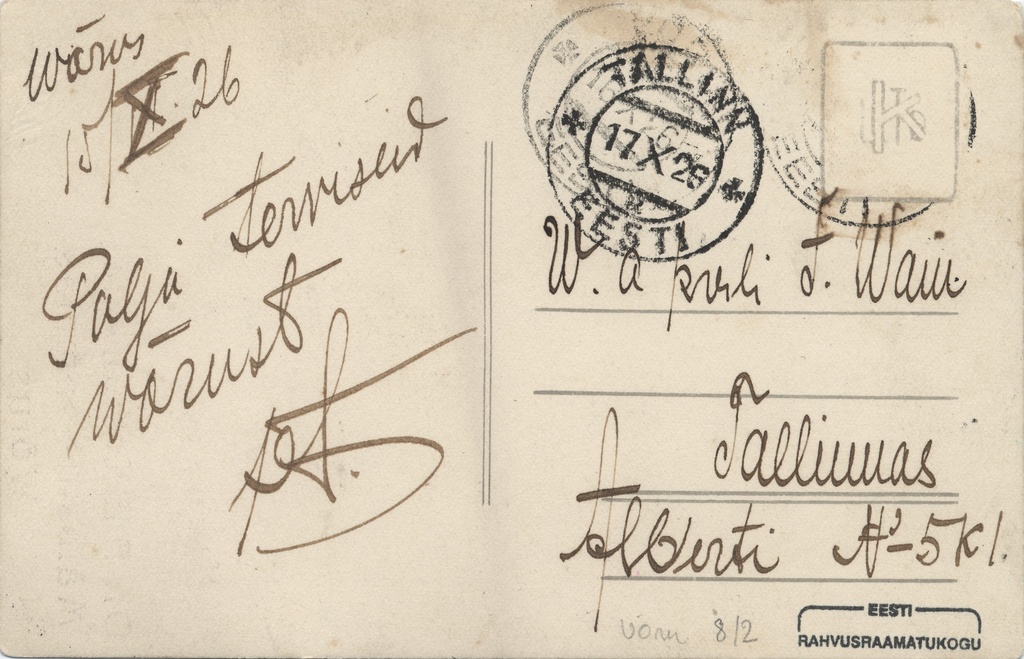 Wõrus
15/X.26
Palju terviseid
Wõrust
TALLINN
17 X 26
EESTI
EESTI
W. a prli F.
Tallinnas
Alberti № 5 K 1.
võru 8/2
EESTI
RAHVUSRAAMATUKOGU